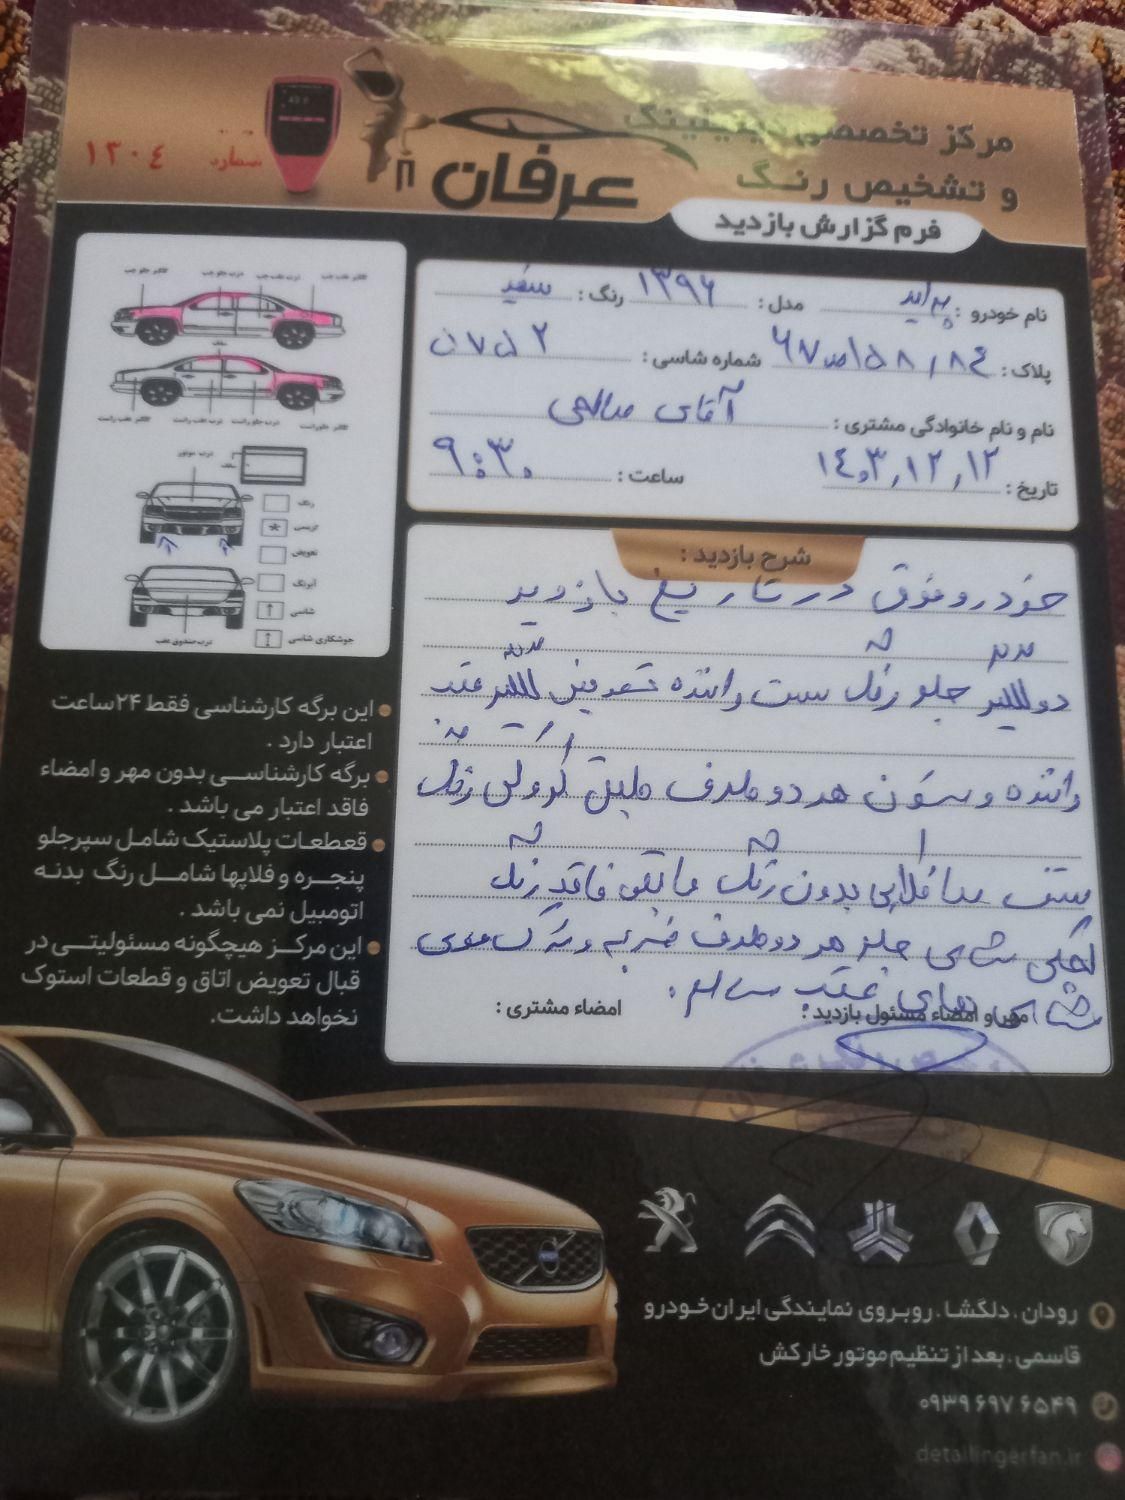 مرکز تخصصی دیتیلینگ
و تشخیص رنگ
عرفان
شماره ۱۲۰۴
فرم گزارش بازدید
نام خودرو : پراید مدل : ۱۳۹۶ رنگ : سفید
پلاک : شماره شاسی :
نام و نام خانوادگی مشتری : آقای صالحی
تاریخ : ۱۴۰۳,۱۲,۱۲ ساعت : ۹:۳۰
گلگیر جلو چپ درب جلو چپ درب عقب چپ گلگیر عقب چپ
سقف
گلگیر عقب راست درب عقب راست درب جلو راست گلگیر جلو راست
درب موتور
سقف
رنگ
گریس
تعویض
آبرنگ
شاسی
جوشکاری شاسی
درب صندوق عقب
شرح بازدید :
خودرو فوق در تاریخ بازدید
دو گلگیر جلو رنگ ست راننده تعویض گلگیر عقب
راننده و ستون هر دو طرف رنگ
سقف بدون رنگ مابقی فاقد رنگ
شاسی جلو هر دو طرف ضربه و
شاسی های عقب سالم .
مهر و امضاء مسئول بازدید : امضاء مشتری :
این برگه کارشناسی فقط ۲۴ ساعت
اعتبار دارد .
برگه کارشناسی بدون مهر و امضاء
فاقد اعتبار می باشد .
قطعات پلاستیک شامل سپرجلو
پنجره و فلاپها شامل رنگ بدنه
اتومبیل نمی باشد .
این مرکز هیچگونه مسئولیتی در
قبال تعویض اتاق و قطعات استوک
نخواهد داشت.
رودان ، دلگشا ، روبروی نمایندگی ایران خودرو
قاسمی ، بعد از تنظیم موتور خارکش
۰۹۳۹ ۶۹۷ ۶۵۴۹
detailingerfan.ir